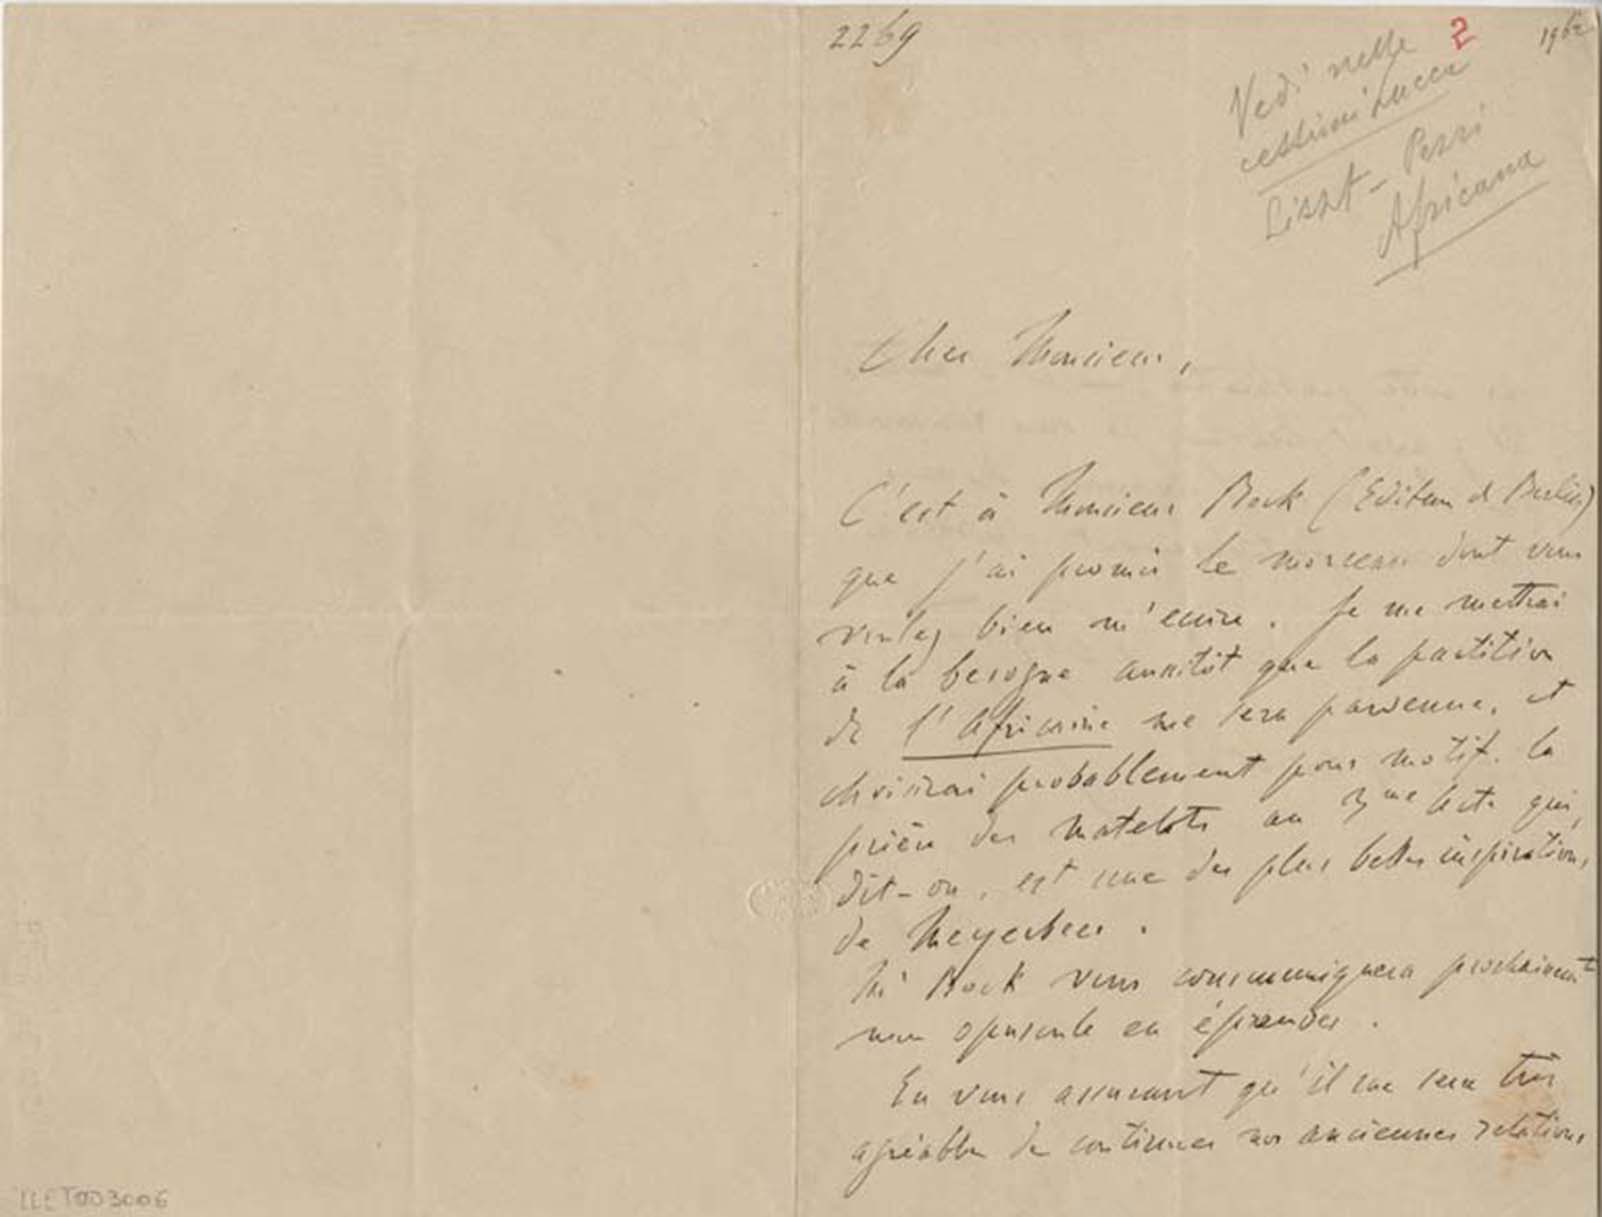 2269
2
196
Vedi nelle
cessioni Lucca
Liszt - Pezzi
Africana
Cher Monsieur,
C'est à Monsieur Bock (Editeur à Berlin)
que j'ai promis le morceau dont vous
voulez bien m'écrire. Je me mettrai
à la besogne aussitôt que la partition
de l'Africaine me sera parvenue, et
choisirai probablement pour motif, la
prière des matelots au 3me Acte qui,
dit-on, est une des plus belles inspirations
de Meyerbeer.
Mr Bock vous communiquera prochainement
mon opuscule en épreuves.
En vous assurant qu'il me sera très
agréable de continuer nos anciennes relations
LLET003006